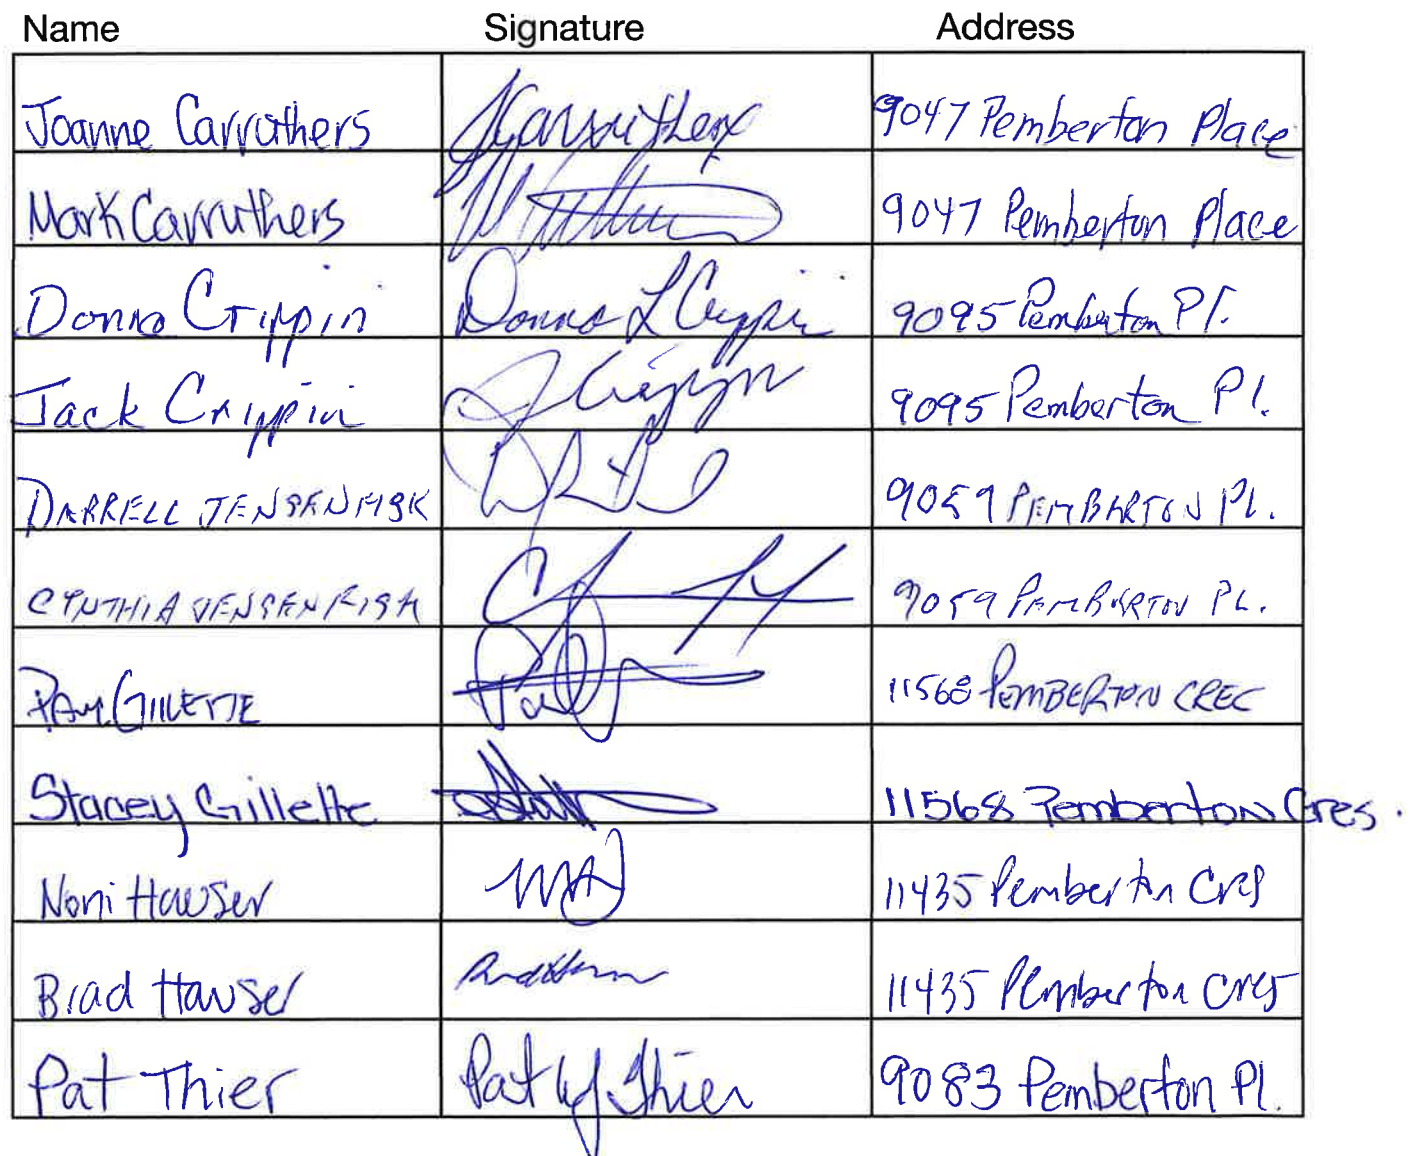 Name Signature Address
Joanne Carruthers JCarruthers 9047 Pemberton Place
Mark Carruthers 9047 Pemberton Place
Donna Crippin Donna L Crippin 9095 Pemberton Pl.
Jack Crippin J Crippin 9095 Pemberton Pl.
DARRELL JENSEN FISK 9059 PEMBERTON PL.
CYNTHIA JENSEN FISK 9059 PEMBERTON PL.
GILLETTE 11568 PEMBERTON CREC
Stacey Gillette 11568 Pemberton Cres.
Noni Hauser 11435 Pemberton Cres
Brad Hauser 11435 Pemberton Cres
Pat Thier Pat Thier 9083 Pemberton Pl.